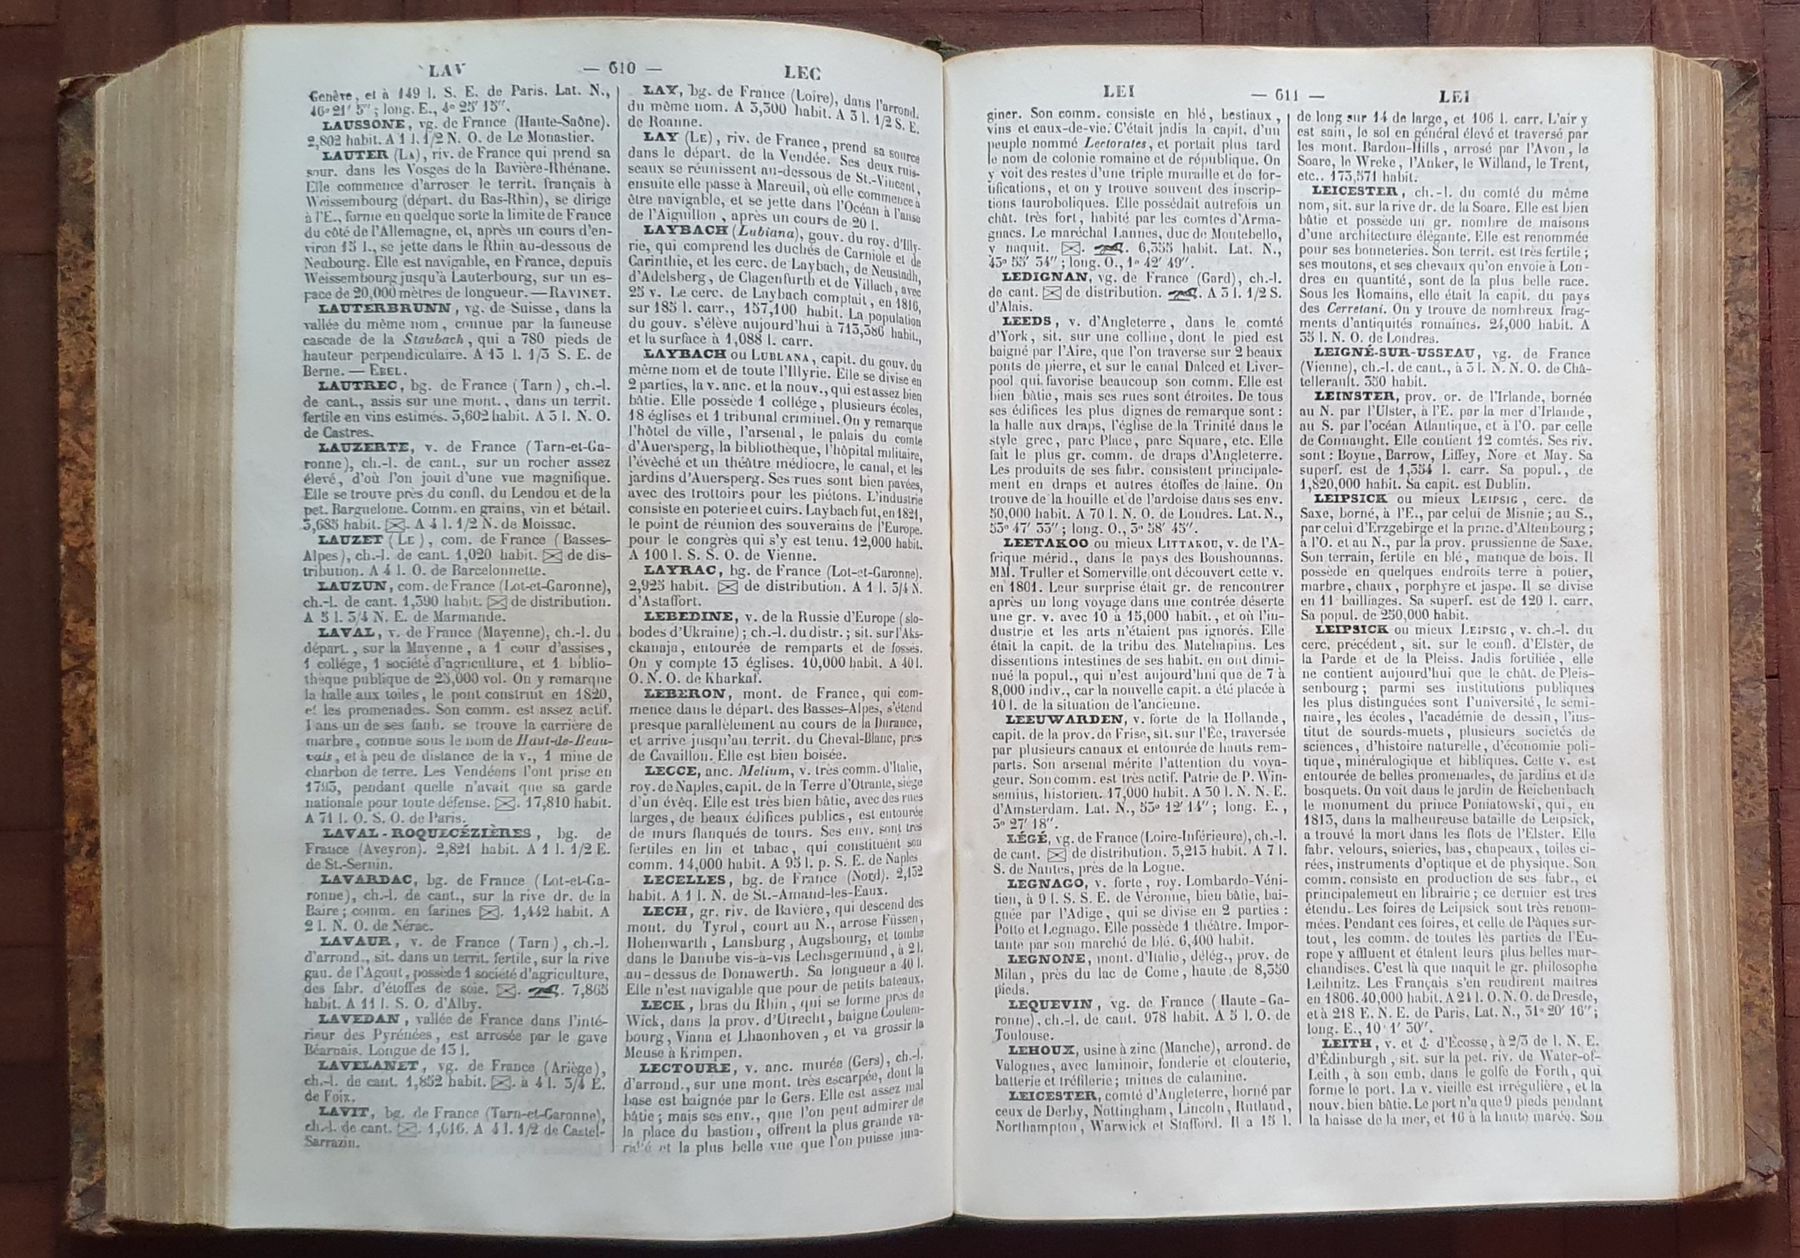 LAV — 610 — LEC
Genève, et à 149 l. S. E. de Paris. Lat. N.,
46° 21′ 5″; long. E., 4° 25′ 15″.
LAUSSONE, vg. de France (Haute-Saône).
2,802 habit. A 1 l. 1/2 N. O. de Le Monastier.
LAUTER (La), riv. de France qui prend sa
sour. dans les Vosges de la Bavière-Rhénane.
Elle commence d'arroser le territ. français à
Weissembourg (départ. du Bas-Rhin), se dirige
à l'E., forme en quelque sorte la limite de France
du côté de l'Allemagne, et, après un cours d'en-
viron 15 l., se jette dans le Rhin au-dessous de
Neubourg. Elle est navigable, en France, depuis
Weissembourg jusqu'à Lauterbourg, sur un es-
pace de 20,000 mètres de longueur. — RAVINET.
LAUTERBRUNN, vg. de Suisse, dans la
vallée du même nom, connue par la fameuse
cascade de la Staubach, qui a 780 pieds de
hauteur perpendiculaire. A 13 l. 1/3 S. E. de
Berne. — EBEL.
LAUTREC, bg. de France (Tarn), ch.-l.
de cant., assis sur une mont., dans un territ.
fertile en vins estimés. 3,602 habit. A 3 l. N. O.
de Castres.
LAUZERTE, v. de France (Tarn-et-Ga-
ronne), ch.-l. de cant., sur un rocher assez
élevé, d'où l'on jouit d'une vue magnifique.
Elle se trouve près du confl. du Lendou et de la
pet. Barguelone. Comm. en grains, vin et bétail.
3,685 habit. A 4 l. 1/2 N. de Moissac.
LAUZET (LE), com. de France (Basses-
Alpes), ch.-l. de cant. 1,020 habit. de dis-
tribution. A 4 l. O. de Barcelonnette.
LAUZUN, com. de France (Lot-et-Garonne),
ch.-l. de cant. 1,390 habit. de distribution.
A 5 l. 3/4 N. E. de Marmande.
LAVAL, v. de France (Mayenne), ch.-l. du
départ., sur la Mayenne, a 1 cour d'assises,
1 collége, 1 société d'agriculture, et 1 biblio-
thèque publique de 25,000 vol. On y remarque
la halle aux toiles, le pont construit en 1820,
et les promenades. Son comm. est assez actif.
Dans un de ses faub. se trouve la carrière de
marbre, connue sous le nom de Haut-de-Beau-
vais, et à peu de distance de la v., 1 mine de
charbon de terre. Les Vendéens l'ont prise en
1793, pendant quelle n'avait que sa garde
nationale pour toute défense. 17,810 habit.
A 71 l. O. S. O. de Paris.
LAVAL-ROQUECÉZIÈRES, bg. de
France (Aveyron). 2,821 habit. A 1 l. 1/2 E.
de St.-Sernin.
LAVARDAC, bg. de France (Lot-et-Ga-
ronne), ch.-l. de cant., sur la rive dr. de la
Baïre; comm. en farines. 1,442 habit. A
2 l. N. O. de Nérac.
LAVAUR, v. de France (Tarn), ch.-l.
d'arrond., sit. dans un territ. fertile, sur la rive
gau. de l'Agout, possède 1 société d'agriculture,
des fabr. d'étoffes de soie. 7,865
habit. A 11 l. S. O. d'Alby.
LAVEDAN, vallée de France dans l'inté-
rieur des Pyrénées, est arrosée par le gave
Béarnais. Longue de 13 l.
LAVELANET, vg. de France (Ariège),
ch.-l. de cant. 1,852 habit. à 4 l. 3/4 E.
de Foix.
LAVIT, bg. de France (Tarn-et-Garonne),
ch.-l. de cant. 1,616. A 4 l. 1/2 de Castel-
Sarrazin.
LAY, bg. de France (Loire), dans l'arrond.
du même nom. A 3,300 habit. A 3 l. 1/2 S. E.
de Roanne.
LAY (LE), riv. de France, prend sa source
dans le départ. de la Vendée. Ses deux ruis-
seaux se réunissent au-dessous de St.-Vincent,
ensuite elle passe à Mareuil, où elle commence à
être navigable, et se jette dans l'Océan à l'anse
de l'Aiguillon, après un cours de 20 l.
LAYBACH (Lubiana), gouv. du roy. d'Illy-
rie, qui comprend les duchés de Carniole et de
Carinthie, et les cerc. de Laybach, de Neustadh,
d'Adelsberg, de Clagenfurth et de Villach, avec
25 v. Le cerc. de Laybach comptait, en 1816,
sur 185 l. carr., 157,100 habit. La population
du gouv. s'élève aujourd'hui à 713,386 habit.,
et la surface à 1,088 l. carr.
LAYBACH ou LUBLANA, capit. du gouv. du
même nom et de toute l'Illyrie. Elle se divise en
2 parties, la v. anc. et la nouv., qui est assez bien
bâtie. Elle possède 1 collége, plusieurs écoles,
18 églises et 1 tribunal criminel. On y remarque
l'hôtel de ville, l'arsenal, le palais du comte
d'Auersperg, la bibliothèque, l'hôpital militaire,
l'évêché et un théâtre médiocre, le canal, et les
jardins d'Auersperg. Ses rues sont bien pavées,
avec des trottoirs pour les piétons. L'industrie
consiste en poterie et cuirs. Laybach fut, en 1821,
le point de réunion des souverains de l'Europe,
pour le congrès qui s'y est tenu. 12,000 habit.
A 100 l. S. S. O. de Vienne.
LAYRAC, bg. de France (Lot-et-Garonne).
2,925 habit. de distribution. A 1 l. 3/4 N.
d'Astaffort.
LEBEDINE, v. de la Russie d'Europe (slo-
bodes d'Ukraine); ch.-l. du distr.; sit. sur l'Aks-
ckanaja, entourée de remparts et de fossés.
On y compte 13 églises. 10,000 habit. A 40 l.
O. N. O. de Kharkaf.
LEBERON, mont. de France, qui com-
mence dans le départ. des Basses-Alpes, s'étend
presque parallèlement au cours de la Durance,
et arrive jusqu'au territ. du Cheval-Blanc, près
de Cavaillon. Elle est bien boisée.
LECCE, anc. Melium, v. très comm. d'Italie,
roy. de Naples, capit. de la Terre d'Otrante, siège
d'un évêq. Elle est très bien bâtie, avec des rues
larges, de beaux édifices publics, est entourée
de murs flanqués de tours. Ses env. sont très
fertiles en lin et tabac, qui constituent son
comm. 14,000 habit. A 95 l. p. S. E. de Naples
LECELLES, bg. de France (Nord). 2,132
habit. A 1 l. N. de St.-Amand-les-Eaux.
LECH, gr. riv. de Bavière, qui descend des
mont. du Tyrol, court au N., arrose Füssen,
Hohenwarth, Lansburg, Augsbourg, et tombe
dans le Danube vis-à-vis Lechsgermund, à 2 l.
au-dessus de Donawerth. Sa longueur a 40 l.
Elle n'est navigable que pour de petits bateaux.
LECK, bras du Rhin, qui se forme près de
Wick, dans la prov. d'Utrecht, baigne Coulem-
bourg, Viana et Lhaonhoven, et va grossir la
Meuse à Krimpen.
LECTOURE, v. anc. murée (Gers), ch.-l.
d'arrond., sur une mont. très escarpée, dont la
base est baignée par le Gers. Elle est assez mal
bâtie; mais ses env., que l'on peut admirer de
la place du bastion, offrent la plus grande va-
riété et la plus belle vue que l'on puisse ima-
LEI — 611 — LEI
giner. Son comm. consiste en blé, bestiaux,
vins et eaux-de-vie. C'était jadis la capit. d'un
peuple nommé Lectorates, et portait plus tard
le nom de colonie romaine et de république. On
y voit des restes d'une triple muraille et de for-
tifications, et on y trouve souvent des inscrip-
tions tauroboliques. Elle possédait autrefois un
chât. très fort, habité par les comtes d'Arma-
gnacs. Le maréchal Lannes, duc de Montebello,
y naquit. 6,355 habit. Lat. N.,
43° 55′ 34″; long. O., 1° 42′ 49″.
LEDIGNAN, vg. de France (Gard), ch.-l.
de cant. de distribution. A 3 l. 1/2 S.
d'Alais.
LEEDS, v. d'Angleterre, dans le comté
d'York, sit. sur une colline, dont le pied est
baigné par l'Aire, que l'on traverse sur 2 beaux
ponts de pierre, et sur le canal Daleed et Liver-
pool qui favorise beaucoup son comm. Elle est
bien bâtie, mais ses rues sont étroites. De tous
ses édifices les plus dignes de remarque sont:
la halle aux draps, l'église de la Trinité dans le
style grec, parc Place, parc Square, etc. Elle
fait le plus gr. comm. de draps d'Angleterre.
Les produits de ses fabr. consistent principale-
ment en draps et autres étoffes de laine. On
trouve de la houille et de l'ardoise dans ses env.
50,000 habit. A 70 l. N. O. de Londres. Lat. N.,
53° 47′ 33″; long. O., 3° 58′ 45″.
LEETAKOO ou mieux LITTAKOU, v. de l'A-
frique mérid., dans le pays des Boushouanas.
MM. Truller et Somerville ont découvert cette v.
en 1801. Leur surprise était gr. de rencontrer
après un long voyage dans une contrée déserte
une gr. v. avec 10 à 15,000 habit., et où l'in-
dustrie et les arts n'étaient pas ignorés. Elle
était la capit. de la tribu des Matchapins. Les
dissentions intestines de ses habit. en ont dimi-
nué la popul., qui n'est aujourd'hui que de 7 à
8,000 indiv., car la nouvelle capit. a été placée à
10 l. de la situation de l'ancienne.
LEEUWARDEN, v. forte de la Hollande,
capit. de la prov. de Frise, sit. sur l'Ée, traversée
par plusieurs canaux et entourée de hauts rem-
parts. Son arsenal mérite l'attention du voya-
geur. Son comm. est très actif. Patrie de P. Win-
semius, historien. 17,000 habit. A 30 l. N. N. E.
d'Amsterdam. Lat. N., 53° 12′ 14″; long. E.,
3° 27′ 18″.
LÉGÉ, vg. de France (Loire-Inférieure), ch.-l.
de cant. de distribution. 3,213 habit. A 7 l.
S. de Nantes, près de la Logne.
LEGNAGO, v. forte, roy. Lombardo-Véni-
tien, à 9 l. S. S. E. de Véronne, bien bâtie, bai-
gnée par l'Adige, qui se divise en 2 parties:
Potto et Legnago. Elle possède 1 théâtre. Impor-
tante par son marché de blé. 6,400 habit.
LEGNONE, mont. d'Italie, délég., prov. de
Milan, près du lac de Come, haute de 8,550
pieds.
LEQUEVIN, vg. de France (Haute-Ga-
ronne), ch.-l. de cant. 978 habit. A 5 l. O. de
Toulouse.
LEHOUX, usine à zinc (Manche), arrond. de
Valognes, avec laminoir, fonderie et clouterie,
batterie et tréfilerie; mines de calamine.
LEICESTER, comté d'Angleterre, borné par
ceux de Derby, Nottingham, Lincoln, Rutland,
Northampton, Warwick et Stafford. Il a 15 l.
de long sur 14 de large, et 106 l. carr. L'air y
est sain, le sol en général élevé et traversé par
les mont. Bardon-Hills, arrosé par l'Avon, le
Soare, le Wreke, l'Anker, le Willand, le Trent,
etc.. 173,571 habit.
LEICESTER, ch.-l. du comté du même
nom, sit. sur la rive dr. de la Soare. Elle est bien
bâtie et possède un gr. nombre de maisons
d'une architecture élégante. Elle est renommée
pour ses bonneteries. Son territ. est très fertile;
ses moutons, et ses chevaux qu'on envoie à Lon-
dres en quantité, sont de la plus belle race.
Sous les Romains, elle était la capit. du pays
des Cerretani. On y trouve de nombreux frag-
ments d'antiquités romaines. 24,000 habit. A
35 l. N. O. de Londres.
LEIGNÉ-SUR-USSEAU, vg. de France
(Vienne), ch.-l. de cant., à 3 l. N. N. O. de Châ-
tellerault. 350 habit.
LEINSTER, prov. or. de l'Irlande, bornée
au N. par l'Ulster, à l'E. par la mer d'Irlande,
au S. par l'océan Atlantique, et à l'O. par celle
de Connaught. Elle contient 12 comtés. Ses riv.
sont: Boyne, Barrow, Liffey, Nore et May. Sa
superf. est de 1,354 l. carr. Sa popul., de
1,820,000 habit. Sa capit. est Dublin.
LEIPSICK ou mieux LEIPSIG, cerc. de
Saxe, borné, à l'E., par celui de Misnie; au S.,
par celui d'Erzgebirge et la princ. d'Altenbourg;
à l'O. et au N., par la prov. prussienne de Saxe.
Son terrain, fertile en blé, manque de bois. Il
possède en quelques endroits terre à potier,
marbre, chaux, porphyre et jaspe. Il se divise
en 11 bailliages. Sa superf. est de 120 l. carr.
Sa popul. de 250,000 habit.
LEIPSICK ou mieux LEIPSIG, v. ch.-l. du
cerc. précédent, sit. sur le confl. d'Elster, de
la Parde et de la Pleiss. Jadis fortifiée, elle
ne contient aujourd'hui que le chât. de Pleis-
senbourg; parmi ses institutions publiques
les plus distinguées sont l'université, le sémi-
naire, les écoles, l'académie de dessin, l'ins-
titut de sourds-muets, plusieurs sociétés de
sciences, d'histoire naturelle, d'économie poli-
tique, minéralogique et bibliques. Cette v. est
entourée de belles promenades, de jardins et de
bosquets. On voit dans le jardin de Reichenbach
le monument du prince Poniatowski, qui, en
1813, dans la malheureuse bataille de Leipsick,
a trouvé la mort dans les flots de l'Elster. Elle
fabr. velours, soieries, bas, chapeaux, toiles ci-
rées, instruments d'optique et de physique. Son
comm. consiste en production de ses fabr., et
principalement en librairie; ce dernier est très
étendu. Les foires de Leipsick sont très renom-
mées. Pendant ces foires, et celle de Pâques sur-
tout, les comm. de toutes les parties de l'Eu-
rope y affluent et étalent leurs plus belles mar-
chandises. C'est là que naquit le gr. philosophe
Leibnitz. Les Français s'en rendirent maîtres
en 1806. 40,000 habit. A 21 l. O. N. O. de Dresde,
et à 218 E. N. E. de Paris. Lat. N., 51° 20′ 16″;
long. E., 10° 1′ 30″.
LEITH, v. et ⚓ d'Écosse, à 2/3 de l. N. E.
d'Édinburgh, sit. sur la pet. riv. de Water-of-
Leith, à son emb. dans le golfe de Forth, qui
forme le port. La v. vieille est irrégulière, et la
nouv. bien bâtie. Le port n'a que 9 pieds pendant
la baisse de la mer, et 16 à la haute marée. Son